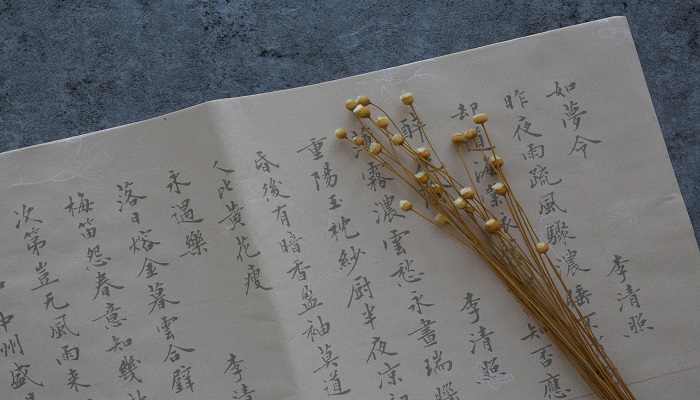 如夢令 李清照
昨夜雨疏風驟濃睡不
却道海棠依 知否應
醉 李清照
薄霧濃雲愁永晝瑞
重陽玉枕紗厨半夜凉初
昏後有暗香盈袖莫道
人比黃花瘦
永遇樂 李清
落日熔金暮雲合璧
梅笛怨春意知幾
次第豈无風雨來
中州盛